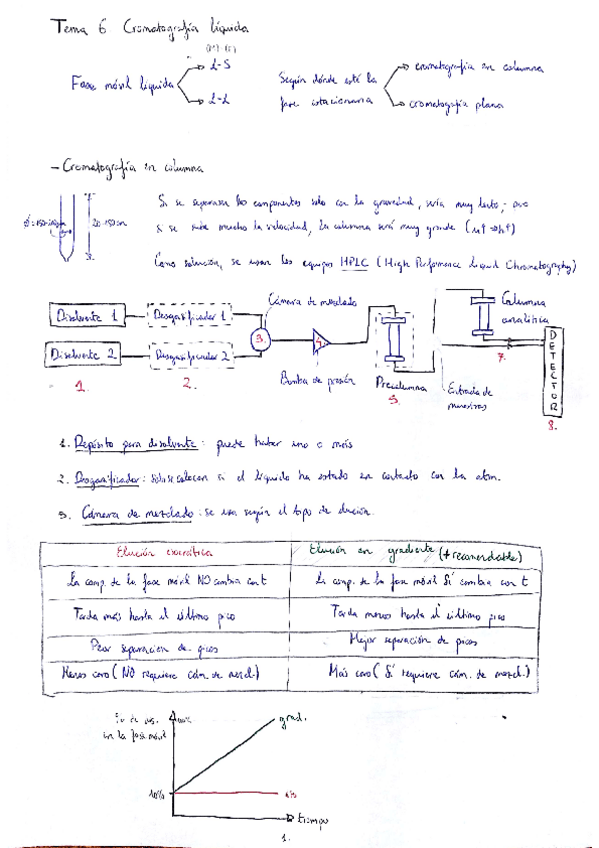 Tema 6 Cromatografía líquida
(M) (E)
Fase móvil líquida
L-S
L-L
Según dónde esté la
fase estacionaria
cromatografía en columna
cromatografía plana
- Cromatografía en columna
20-150cm
Si se separasen los componentes solo con la gravedad, sería muy lento; pero
si se sube mucho la velocidad, la columna será muy grande
Como solución, se usan los equipos HPLC (High Performance Liquid Chromatography)
Disolvente 1
Desgasificador 1
Cámara de mezclado
Columna
analítica
Disolvente 2
Desgasificador 2
3.
4.
Bomba de presión
Precolumna
Entrada de
muestras
DETECTOR
1.
2.
5.
7.
8.
1. Depósito para disolvente: puede haber uno o más
2. Desgasificador: solo se colocan si el líquido ha estado en contacto con la atm.
3. Cámara de mezclado: se usa según el tipo de elución.
Elución isocrática
Elución en gradiente (+ recomendable)
La comp. de la fase móvil NO cambia con t
La comp. de la fase móvil SÍ cambia con t
Tarda más hasta el último pico
Tarda menos hasta el último pico
Peor separación de picos
Mejor separación de picos
Menos caro (NO requiere cám. de mezcl.)
Más caro (SÍ requiere cám. de mezcl.)
en la fase móvil
grad.
10%
tiempo
1.